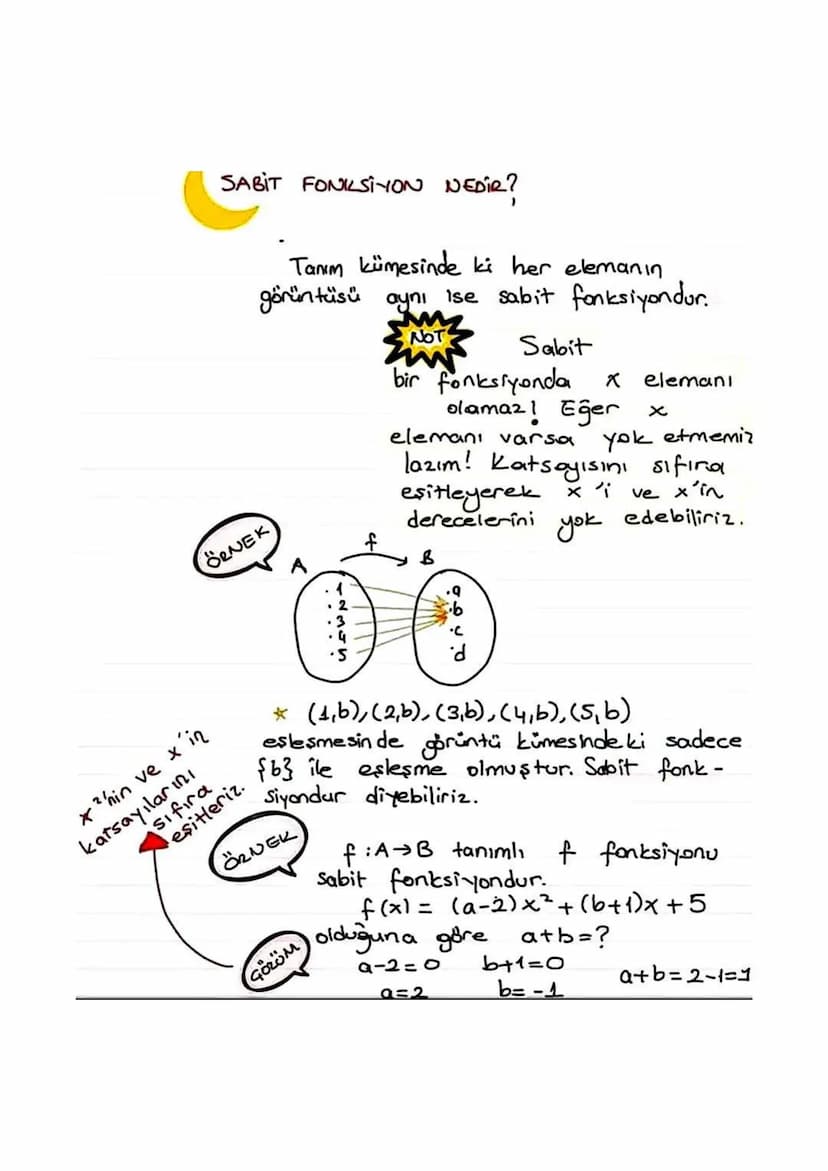 SABİT FONKSİYON NEDİR?
Tanım kümesinde ki her elemanın
görüntüsü aynı ise sabit fonksiyondur.
NOT
Sabit
bir fonksiyonda x elemanı
olamaz! Eğer x
elemanı varsa yok etmemiz
lazım! Katsayısını sıfıra
eşitleyerek x'i ve x'in
derecelerini yok edebiliriz.
ÖRNEK
A f B
.1 .a
.2 .b
.3 .c
.4 .d
.5
* (1,b),(2,b),(3,b),(4,b),(5,b)
eşleşmesinde görüntü kümesindeki sadece
{b} ile eşleşme olmuştur. Sabit fonk-
siyondur diyebiliriz.
x²'nin ve x'in
katsayılarını
sıfıra
eşitleriz.
ÖRNEK
f:A→B tanımlı f fonksiyonu
sabit fonksiyondur.
f(x) = (a-2)x²+(b+1)x+5
olduğuna göre a+b=?
ÇÖZÜM
a-2=0 b+1=0 a+b=2-1=1
a=2 b=-1